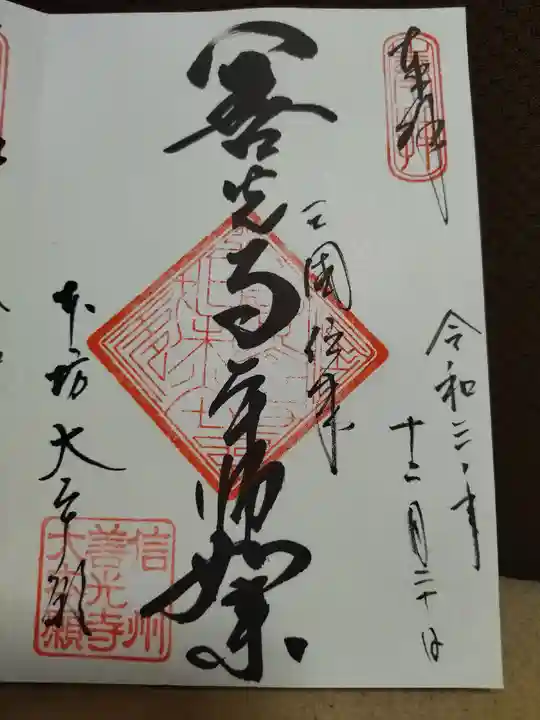 奉拝
令和二年
十二月二十日
三国傳来
善光寺本師如来
本坊 大本願
信州
善光寺
大本願